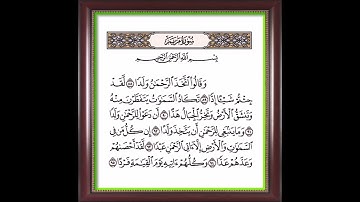 سورة مريم
بِسْمِ اللَّهِ الرَّحْمَٰنِ الرَّحِيمِ
وَقَالُوا اتَّخَذَ الرَّحْمَٰنُ وَلَدًا ۝ لَّقَدْ
جِئْتُمْ شَيْئًا إِدًّا ۝ تَكَادُ السَّمَاوَاتُ يَتَفَطَّرْنَ مِنْهُ
وَتَنشَقُّ الْأَرْضُ وَتَخِرُّ الْجِبَالُ هَدًّا ۝ أَن دَعَوْا لِلرَّحْمَٰنِ وَلَدًا
۝ وَمَا يَنبَغِي لِلرَّحْمَٰنِ أَن يَتَّخِذَ وَلَدًا ۝ إِن كُلُّ مَن فِي
السَّمَاوَاتِ وَالْأَرْضِ إِلَّا آتِي الرَّحْمَٰنِ عَبْدًا ۝ لَّقَدْ أَحْصَاهُمْ
وَعَدَّهُمْ عَدًّا ۝ وَكُلُّهُمْ آتِيهِ يَوْمَ الْقِيَامَةِ فَرْدًا ۝